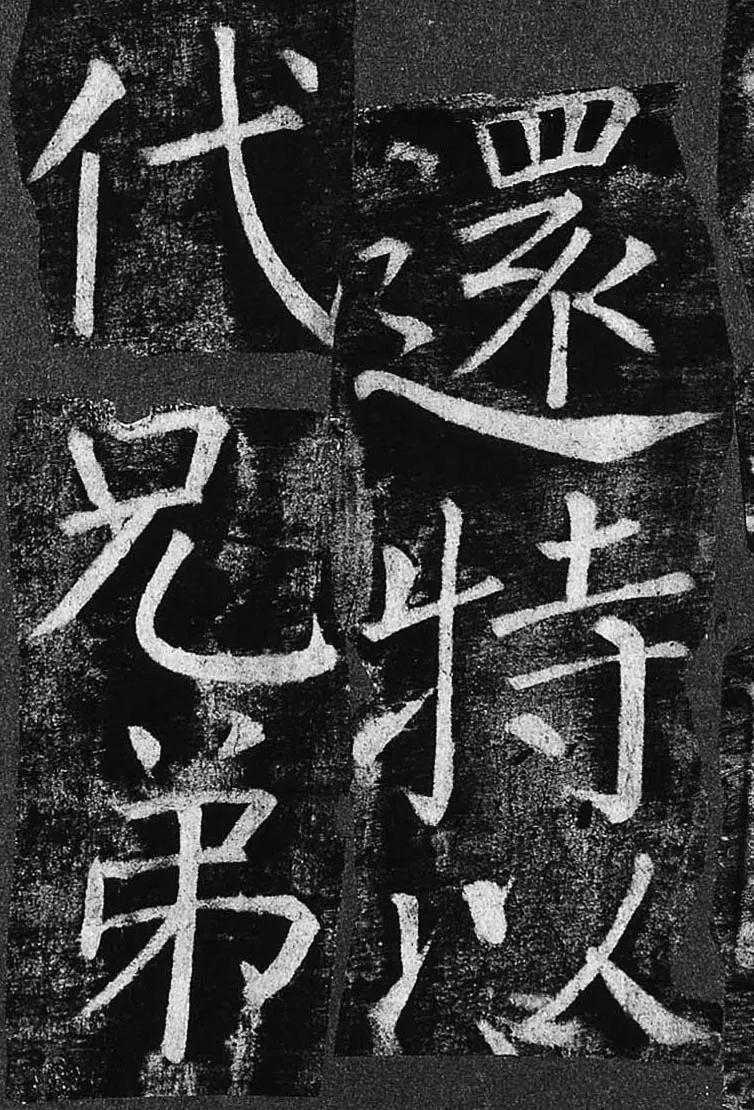 還特以
代兄弟